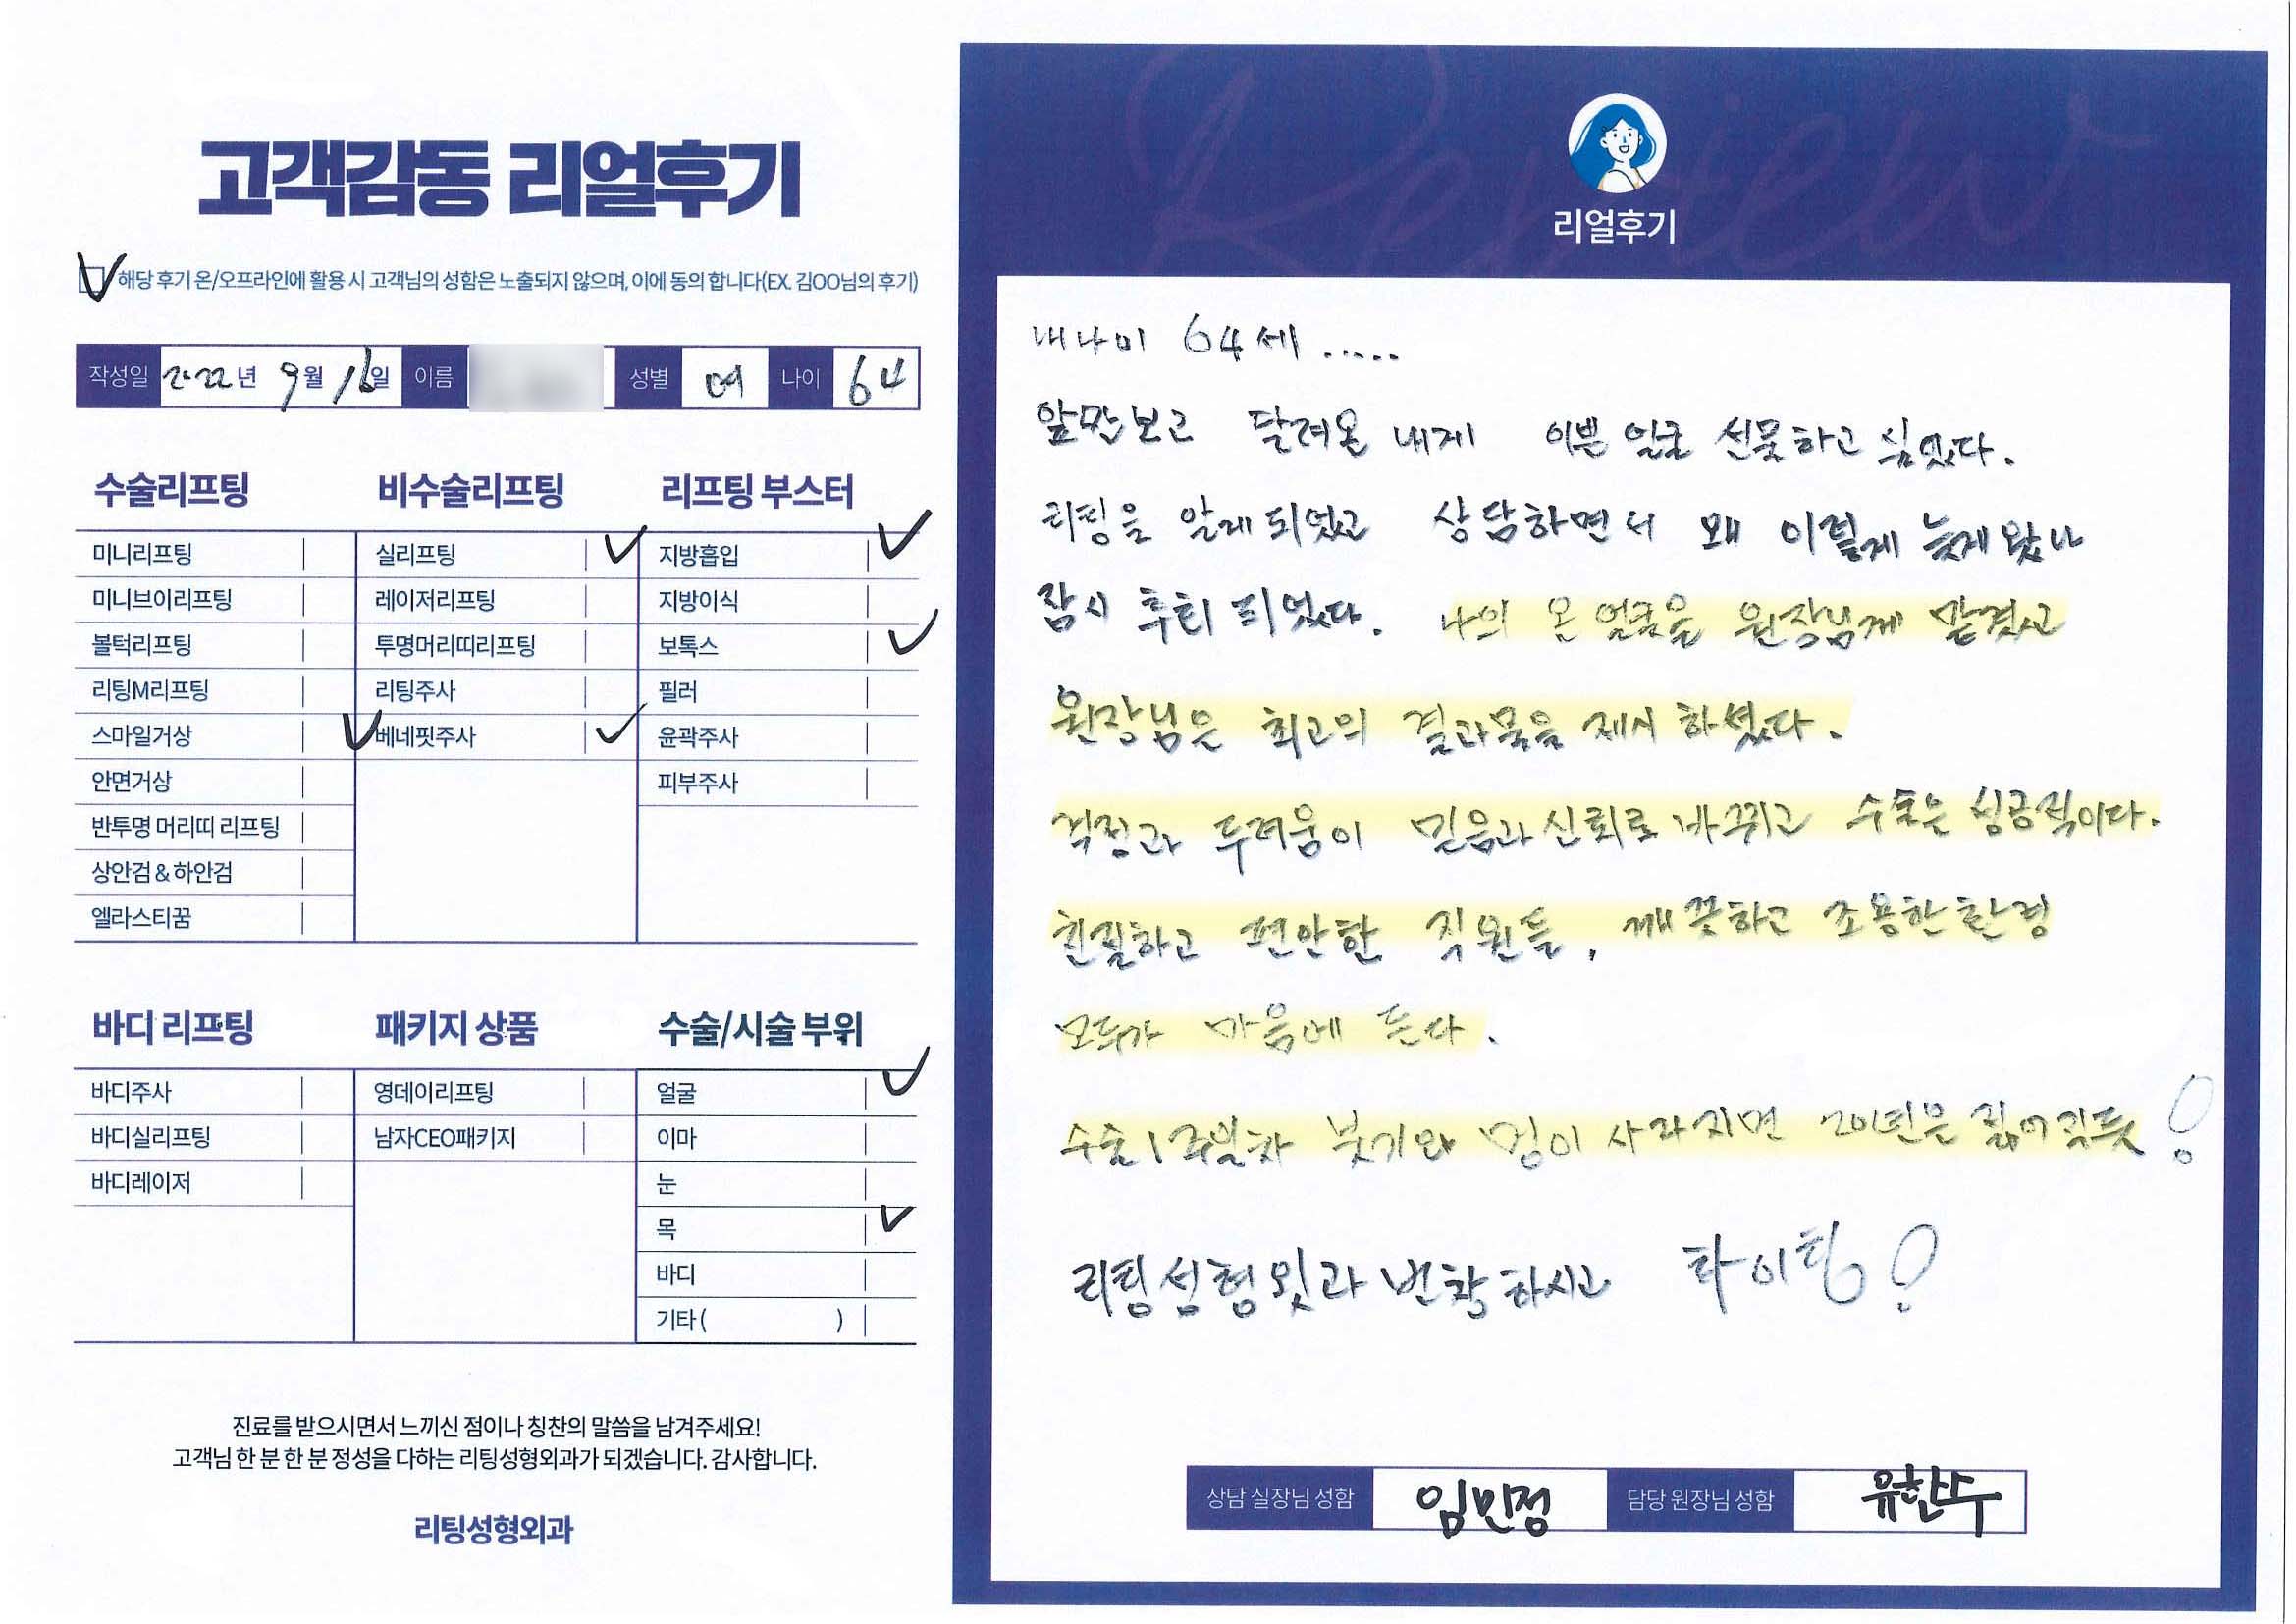 고객감동 리얼후기
해당 후기 온/오프라인에 활용 시 고객님의 성함은 노출되지 않으며, 이에 동의 합니다(EX. 김OO님의 후기)
작성일 2022년 9월 16일 이름 성별 여 나이 64
수술리프팅
미니리프팅
미니브이리프팅
볼턱리프팅
리팅M리프팅
스마일거상
안면거상
반투명 머리띠 리프팅
상안검 & 하안검
엘라스티꿈
비수술리프팅
실리프팅
레이저리프팅
투명머리띠리프팅
리팅주사
베네핏주사
리프팅 부스터
지방흡입
지방이식
보톡스
필러
윤곽주사
피부주사
바디 리프팅
바디주사
바디실리프팅
바디레이저
패키지 상품
영데이리프팅
남자CEO패키지
수술/시술 부위
얼굴
이마
눈
목
바디
기타 ( )
진료를 받으시면서 느끼신 점이나 칭찬의 말씀을 남겨주세요!
고객님 한 분 한 분 정성을 다하는 리팅성형외과가 되겠습니다. 감사합니다.
리팅성형외과
Review
리얼후기
내나이 64세 .....
앞만보고 달려온 내게 이쁜 얼굴 선물하고 싶었다.
리팅을 알게 되었고 상담하면서 왜 이렇게 늦게 왔나
잠시 후회 되었다. 나의 온 얼굴을 원장님께 맡겼고
원장님은 최고의 결과물을 제시 하셨다.
걱정과 두려움이 믿음과 신뢰로 바뀌고 수술은 성공적이다.
친절하고 편안한 직원들, 깨끗하고 조용한 환경
모두가 마음에 든다.
수술 1주일차 붓기와 멍이 사라지면 20년은 젊어질듯!
리팅성형외과 번창하시고 화이팅!
상담 실장님 성함 임민정 담당 원장님 성함 유한수